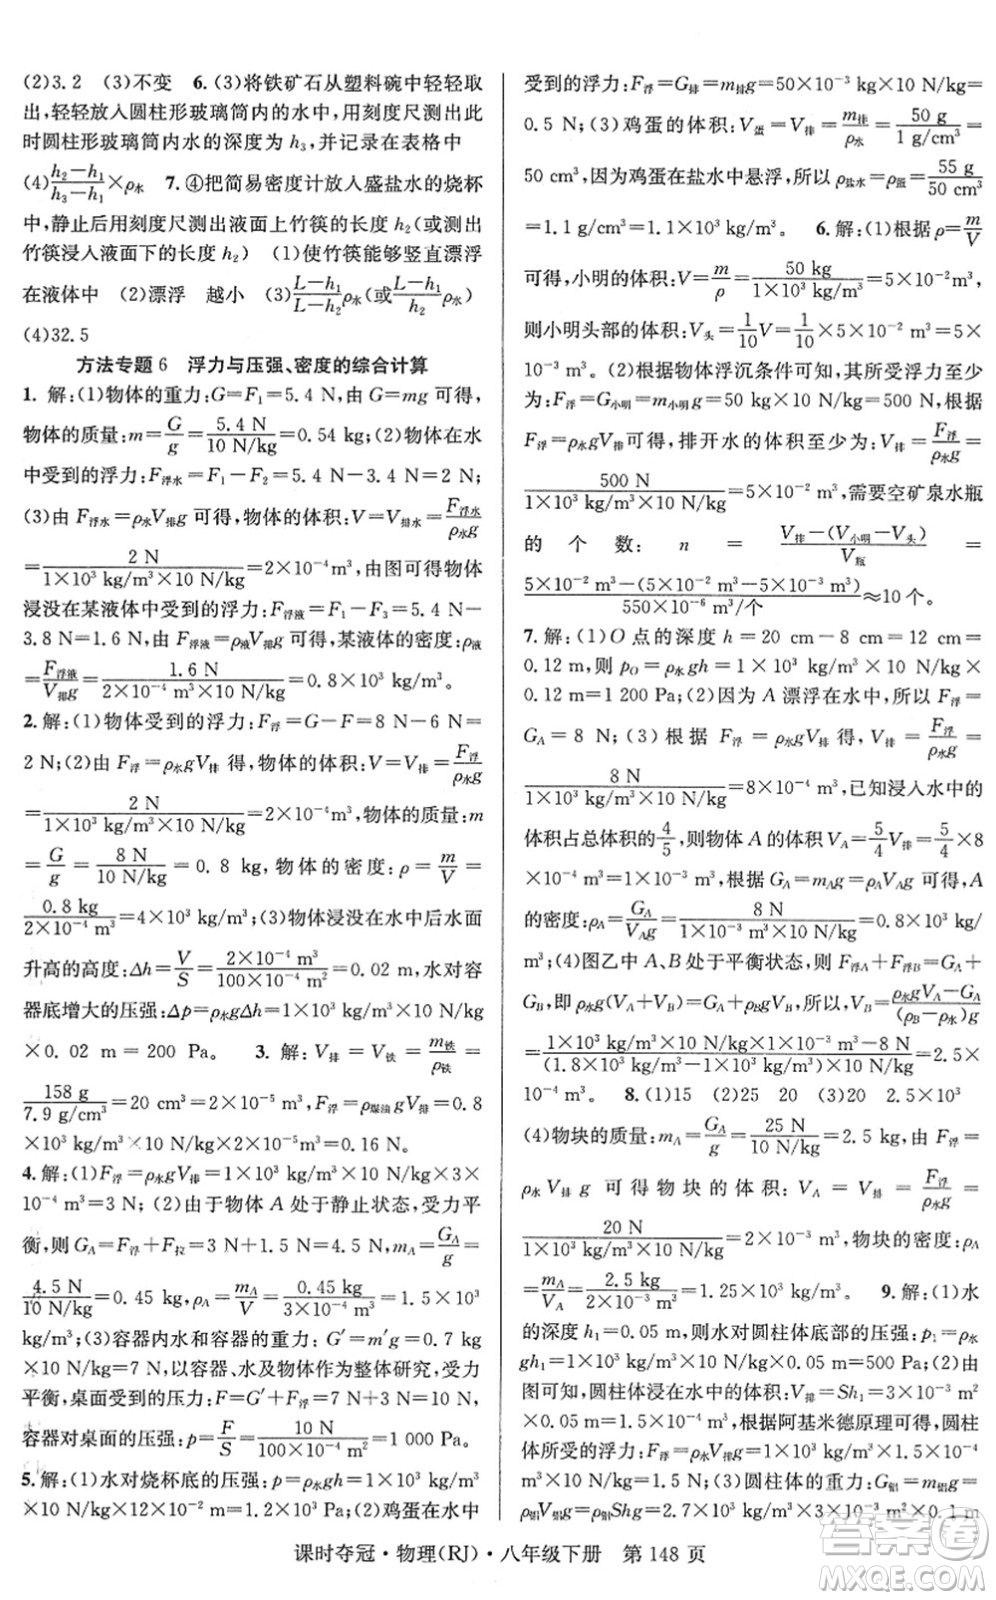 (2)3.2　(3)不变　6.(3)将铁矿石从塑料碗中轻轻取
出,轻轻放入圆柱形玻璃筒内的水中,用刻度尺测出此
时圆柱形玻璃筒内水的深度为 h₃,并记录在表格中
(4)(h₂−h₁)/(h₃−h₁)×ρ水　7.④把简易密度计放入盛盐水的烧杯
中,静止后用刻度尺测出液面上竹筷的长度 h₂(或测出
竹筷浸入液面下的长度 h₂)　(1)使竹筷能够竖直漂浮
在液体中　(2)漂浮　越小　(3)(L−h₁)/(L−h₂)ρ水(或(L−h₁)/h₂ρ水)
(4)32.5
方法专题 6　浮力与压强、密度的综合计算
1. 解:(1)物体的重力:G=F₁=5.4 N,由 G=mg 可得,
物体的质量:m=G/g=5.4 N/10 N/kg=0.54 kg;(2)物体在水
中受到的浮力:F浮水=F₁−F₂=5.4 N−3.4 N=2 N;
(3)由 F浮水=ρ水V排g 可得,物体的体积:V=V排水=F浮水/ρ水g
=2 N/1×10³ kg/m³×10 N/kg=2×10⁻⁴m³,由图可得物体
浸没在某液体中受到的浮力:F浮液=F₁−F₃=5.4 N−
3.8 N=1.6 N,由 F浮液=ρ液V排g 可得,某液体的密度:ρ液
=F浮液/V排g=1.6 N/2×10⁻⁴ m³×10 N/kg=0.8×10³ kg/m³。
2.解:(1)物体受到的浮力:F浮=G−F=8 N−6 N=
2 N;(2)由 F浮=ρ水gV排 得,物体的体积:V=V排=F浮/ρ水g
=2 N/1×10³ kg/m³×10 N/kg=2×10⁻⁴m³,物体的质量:m
=G/g=8 N/10 N/kg=0.8 kg,物体的密度:ρ=m/V=
0.8 kg/2×10⁻⁴ m³=4×10³ kg/m³;(3)物体浸没在水中后水面
升高的高度:Δh=V/S=2×10⁻⁴ m³/100×10⁻⁴ m²=0.02 m,水对容
器底增大的压强:Δp=ρ水gΔh=1×10³kg/m³×10 N/kg
×0.02 m=200 Pa。　3. 解:V排=V铁=m铁/ρ铁=
158 g/7.9 g/cm³=20 cm³=2×10⁻⁵ m³,F浮=ρ煤油gV排=0.8
×10³kg/m³×10 N/kg×2×10⁻⁵m³=0.16 N。
4.解:(1)F浮=ρ水gV排=1×10³kg/m³×10 N/kg×3×
10⁻⁴ m³=3 N;(2)由于物体 A 处于静止状态,受力平
衡,则 GA=F浮+F拉=3 N+1.5 N=4.5 N,mA=GA/g=
4.5 N/10 N/kg=0.45 kg,ρA=mA/V=0.45 kg/3×10⁻⁴ m³=1.5×10³
kg/m³;(3)容器内水和容器的重力:G′=m′g=0.7 kg
×10 N/kg=7 N,以容器、水及物体作为整体研究,受力
平衡,桌面受到的压力:F=G′+F浮=7 N+3 N=10 N,
容器对桌面的压强:p=F/S=10 N/100×10⁻⁴m²=1 000 Pa。
5.解:(1)水对烧杯底的压强:p=ρ水gh=1×10³kg/m³
×10 N/kg×12×10⁻² m=1 200 Pa;(2)鸡蛋在水中
受到的浮力:F浮=G排=m排g=50×10⁻³ kg×10 N/kg=
0.5 N;(3)鸡蛋的体积:V蛋=V排=m排/ρ水=50 g/1 g/cm³=
50 cm³,因为鸡蛋在盐水中悬浮,所以 ρ盐水=ρ蛋=55 g/50 cm³
=1.1 g/cm³=1.1×10³ kg/m³。　6.解:(1)根据ρ=m/V
可得,小明的体积:V=m/ρ=50 kg/1×10³kg/m³=5×10⁻²m³,
则小明头部的体积:V头=1/10V=1/10×5×10⁻² m³=5×
10⁻³ m³;(2)根据物体浮沉条件可知,所受浮力至少
为:F浮=G小明=m小明g=50 kg×10 N/kg=500 N,根据
F浮=ρ水gV排可得,排开水的体积至少为:V排=F浮/ρ水g=
500 N/1×10³ kg/m³×10 N/kg=5×10⁻² m³,需要空矿泉水瓶
的个数:n=V排−(V小明−V头)/V瓶=
5×10⁻² m³−(5×10⁻² m³−5×10⁻³ m³)/550×10⁻⁶ m³/个≈10 个。
7.解:(1)O 点的深度 h=20 cm−8 cm=12 cm=
0.12 m,则 pO=ρ水gh=1×10³ kg/m³×10 N/kg×
0.12 m=1 200 Pa;(2)因为 A 漂浮在水中,所以 F浮=
GA=8 N;(3)根据 F浮=ρ水gV排 得,V排=F浮/ρ水g=
8 N/1×10³ kg/m³×10 N/kg=8×10⁻⁴ m³,已知浸入水中的
体积占总体积的4/5,则物体 A 的体积 VA=5/4V排=5/4×8
×10⁻⁴ m³=1×10⁻³m³,根据 GA=mAg=ρAVAg 可得,A
的密度:ρA=GA/VAg=8 N/1×10⁻³ m³×10 N/kg=0.8×10³ kg/
m³;(4)图乙中 A、B 处于平衡状态,所以 F浮A+F浮B=GA+
GB,即 ρ水g(VA+VB)=GA+ρBgVB,所以,VB=ρ水gVA−GA/(ρB−ρ水)g
=1×10³ kg/m³×10 N/kg×1×10⁻³ m³−8 N/(1.8×10³kg/m³−1×10³kg/m³)×10 N/kg=2.5×
10⁻⁴ m³。　8.(1)15　(2)25　20　(3)20　2.5×10³
(4)物块的质量:mA=GA/g=25 N/10 N/kg=2.5 kg,由 F浮=
ρ水V排g 可得物块的体积:VA=V排=F浮/ρ水g=
20 N/1×10³ kg/m³×10 N/kg=2×10⁻³ m³,物块的密度:ρA
=mA/VA=2.5 kg/2×10⁻³ m³=1.25×10³ kg/m³。　9.解:(1)水
的深度 h₁=0.05 m,水对圆柱体底部的压强:p₁=ρ水
gh₁=1×10³kg/m³×10 N/kg×0.05 m=500 Pa;(2)由
图可知,圆柱体浸在水中的体积:V排=Sh₁=3×10⁻³m²
×0.05 m=1.5×10⁻⁴ m³,根据阿基米德原理可得,圆柱
体所受的浮力:F浮=ρ水gV排=1×10³kg/m³×1.5×10⁻⁴
m³×10 N/kg=1.5 N;(3)圆柱体的重力:G铝=m铝g=
ρ铝Vg=ρ铝Shg=2.7×10³ kg/m³×3×10⁻³m²×0.1 m
课时夺冠·物理(RJ)·八年级下册　第 148 页
答案圈
MXQE.COM